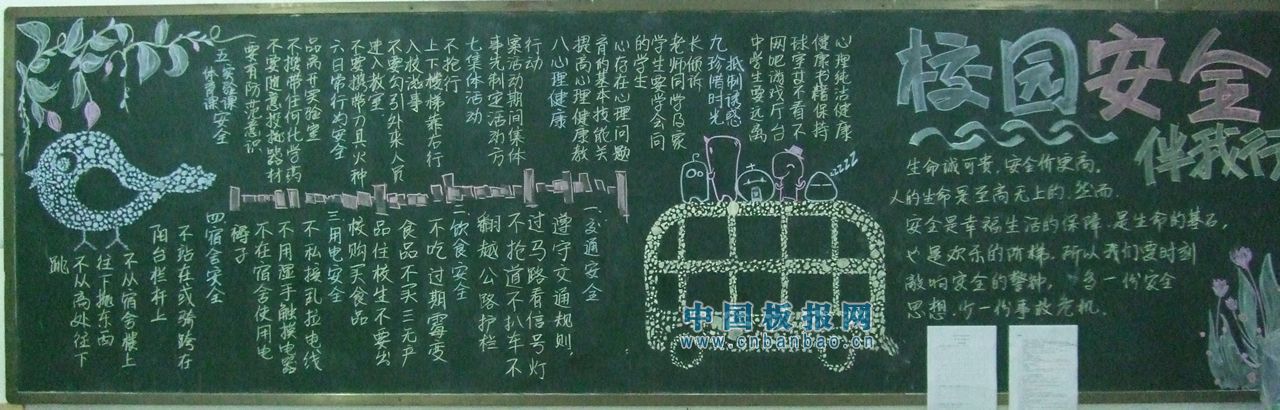 校园安全
伴我行
生命诚可贵,安全价更高。
人的生命是至高无上的.然而.
安全是幸福生活的保障.是生命的基石,
也是欢乐的阶梯.所以我们要时刻
敲响安全的警钟, 多一份安全
思想.少一份事故危机.
一.交通安全
遵守交通规则,
过马路看信号灯
不抢道不扒车不
翻越公路护栏
二.饮食安全
不吃过期霉变
食品不买三无产
品住校生不要出
校购买食品
三用电安全
不私接乱拉电线
不用湿手触摸电器
不在宿舍使用电
褥子
四宿舍安全
不站在或骑跨在
阳台栏杆上
不从宿舍楼上
往下抛东西
不从高处往下
跳
五.实验课安全
体育课安全
要有防范意识
不要随意拨动器材
不携带任何化学药
品离开实验室
六日常行为安全
不要携带刀具火种
进入教室
不要勾引外来人员
入校滋事
上下楼梯靠右行
不抢行
七集体活动
事先制定活动方
案活动期间集体
行动
八心理健康
提高心理健康教
育的基本技能关
心存在心理问题
的学生
学生要学会向
老师同学及家
长倾诉
九.抵制诱惑
珍惜时光
中学生要远离
网吧游戏厅台
球室并不看不
健康书籍保持
心理纯洁健康
zzZZ
中国板报网
www.cnbanbao.cn